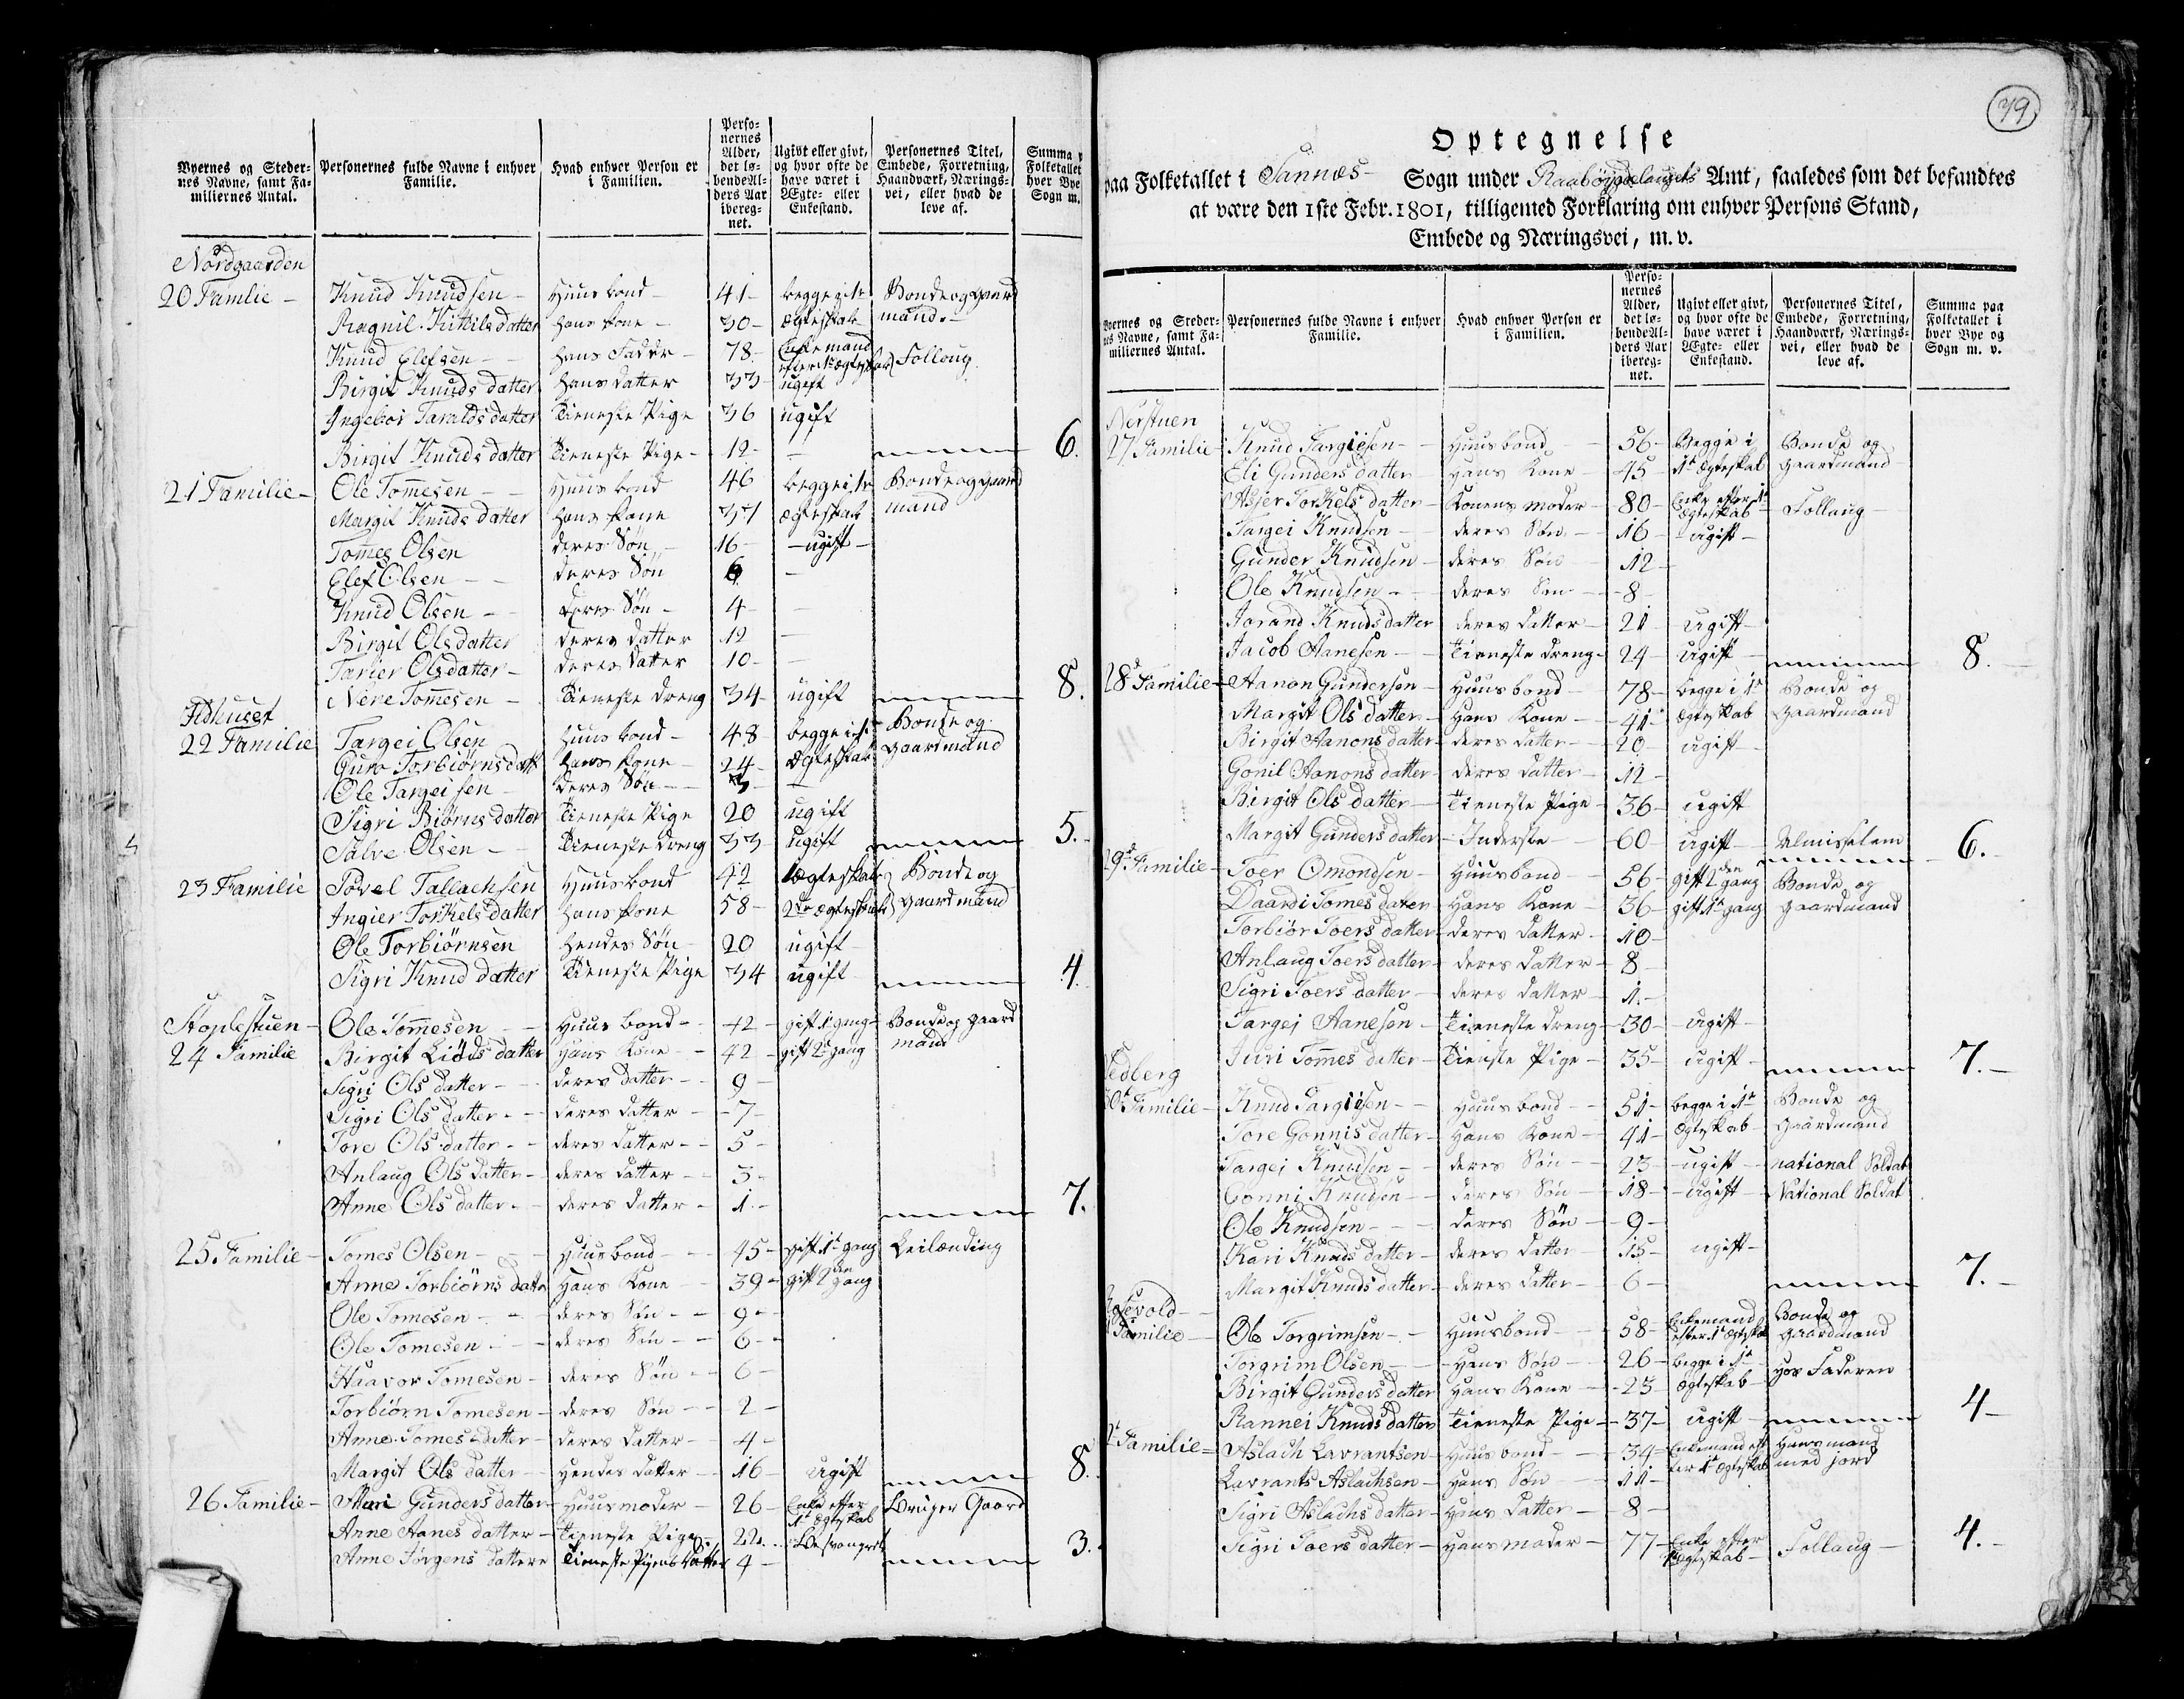 Byernes og Steder-
nes Navne, samt Fa-
miliernes Antal.
Personernes fulde Navne i enhver
Familie.
Hvad enhver Person er
i Familien.
Perso-
nernes
Alder,
det lø-
bende Al-
ders Aar
ibereg-
net.
Ugivt eller givt,
og hvor ofte de
have været i
Ægte- eller
Enkestand.
Personernes Titel,
Embede, Forretning,
Haandværk, Nærings-
vei, eller hvad de
leve af.
Summa
Folketallet
hver Bye
Sogn m.
Nordgaarden
20 Famlie - Knud Knudsen - Huusbond - 41 - begge i 1te Bonde og Gaard
Ragnil Kittils datter hans kone - 30 - Ægteskab mand. -
Knud Elefsen - hans Fader - 78 - Enkemand
efter 1te Ægteskab Follaug
Birgit Knuds datter hans datter 33 - ugift
Ingebor Taralds datter Tieneste Pige 36 ugift
Birgit Knuds datter Tieneste Pige - 12 - - 6.
21 Familie - Ole Tomesen - Huusbond 46 begge i 1te Bonde og Gaard
Margit Knuds datter hans kone 37 Ægteskab mand
Tomes Olsen deres Søn 16 - - ugift -
Elef Olsen - deres Søn 6 -
Knud Olsen - deres Søn - 4 -
Birgit Olsdatter deres datter 12 -
Tarier Olsdatter - deres datter 10 - -
Nere Tomesen - Tieneste dreng 34 - ugift 8.
Ildhuset
22 Familie Targei Olsen Huusbond - 48 - begge i 1te Bonde og
Guro Torbiørnsdatt hans kone - 24 - Ægteskab Gaardmand
Ole Targeisen - deres Søn - 3 - -
Sigri Biørns datter Tieneste Pige 20 ugift
Salve Olsen - Tieneste dreng 33 ugift 5. -
23 Familie Povel Tallachsen Huusbond 42 1 Ægteskab Bonde og
Ingier Torkels datter hans kone 58 - 2de Ægteskab Gaardmand
Ole Torbiørnsen hendes Søn - 20 ugift
Sigri Knud datter Tieneste Pige 34 ugift 4.
Stoplestuen -
24 Familie Ole Tomesen Huusbond - 42 - gift 1te gang - Bonde og Gaard
Birgit Liöds datter Hans Kone - 42 - gift 2de gang mand
Sigri Ols datter - deres datter - 9 -
Sigri Ols datter - deres datter - 7 -
Tore Ols datter - deres datter - 5 -
Anlaug Ols datter - deres datter - 3 -
Anne Ols datter - deres datter - 1 - 7.
25 Familie - Tomes Olsen - Huusbond - 45 - gift 1te gang Leilænding
Anne Torbiørns datter Hans Kone 39 - gift 2den gang
Ole Tomesen - deres Søn - 9 -
Ole Tomesen - deres Søn - 6 -
Haavor Tomesen - deres Søn - 6 -
Torbiørn Tomesen - deres Søn - 2 -
Anne Tomes datter - deres datter - 4 -
Margit Ols datter - Hendes datter - 16 - ugift 8.
26 Familie - Mari Gunders datter - Huusmoder - 26 - Enke efter
1te Ægteskab Bruger Gaard
Anne Aanes datter - Tieneste Pige - 22. - Besvangret
Anne Jörgens datter Tieneste Pigens datter 4 - 3.
79
Optegnelse
paa Folketallet i Sannæs - Sogn under Raabøigdelaugets Amt, saaledes som det befandtes
at være den 1ste Febr. 1801, tilligemed Forklaring om enhver Persons Stand,
Embede og Næringsvei, m. v.
Byernes og Steder-
nes Navne, samt Fa-
miliernes Antal.
Personernes fulde Navne i enhver
Familie.
Hvad enhver Person er
i Familien.
Perso-
nernes
Alder,
det lø-
bende Al-
ders Aar
ibereg-
net.
Ugivt eller givt,
og hvor ofte de
have været i
Ægte- eller
Enkestand.
Personernes Titel,
Embede, Forretning,
Haandværk, Nærings-
vei, eller hvad de
leve af.
Summa paa
Folketallet i
hver Bye og
Sogn m. v.
Nerstuen
27 Familie - Knud Targiesen - Huusbond 56 - Begge i Bonde og
Eli Gunders datter Hans Kone - 45 - 1te Ægteskab Gaardmand
Asjer Torkels datter - Konens moder - 80 - Enke efter 1te
Ægteskab - Follaug -
Targei Knudsen - deres Søn - 16 - ugift -
Gunder Knudsen - deres Søn 12 -
Ole Knudsen - deres Søn - 8 -
Jorand Knudsdatter deres datter - 21 ugift
Jacob Aanesen - Tieneste dreng - 24 - ugift - 8.
28de Familie - Aanon Gundersen - Huusbond - 78 - begge i 1te Bonde og
Margit Ols datter - Hans Kone - 41 - Ægteskab Gaardmand
Birgit Aanons datter - deres datter - 20 - ugift -
Gonil Aanons datter - deres datter - 12 -
Birgit Ols datter - Tieneste Pige - 36 - ugift
Margit Gunders datter - Inderste - 60 - ugift - Almisselem 6. -
29de Familie - Toer Omondsen - Huusbond - 56 - gift 2den gang Bonde og
Daardi Tomes datter Hans Kone - 36 - gift 1te gang Gaardmand
Torbiør Toers datter - deres datter - 10 -
Anlaug Toers datter - deres datter - 8 -
Sigri Toers datter - deres datter - 1. -
Targei Aanesen - Tieneste dreng - 30 - ugift -
Juri Tomes datter - Tienste Pige - 35 - ugift - 7. -
Vedberg
30te Familie - Knud Targiesen - Huusbond - 51 - begge i 1te Bonde og
Tore Gonnis datter - Hans Kone - 41 - Ægteskab - Gaardmand
Targei Knudsen - deres Søn - 23 - ugift - national Soldat
Gonni Knudsen - deres Søn - 18 - ugift - National Soldat
Ole Knudsen - deres Søn - 9 -
Kari Knuds datter - deres datter - 15 - ugift -
Margit Knuds datter - deres datter - 6 - 7. -
Familie - Ole Torgrimsen - Huusbond - 58 - Enkemand
efter 1te Ægteskab Bonde og
Gaardmand
Torgrim Olsen - Hans Søn - 26 - begge i 1te Hos Faderen
Birgit Gunders datter Hans Kone - 23 - Ægteskab -
Rannei Knuds datter Tieneste Pige - 37 - ugift - 4 -
Familie - Aslach Lavrantsen - Huusbond - 34 - Enkemand ef-
ter 1te Ægteskab Huusmand
med jord
Lavrants Aslachsen - Hans Søn - 11 -
Sigri Aslachs datter - Hans datter - 8 -
Sigri Toers datter - Hans moder - 77 - Enke efter
1te Ægteskab - Follaug - 4. -